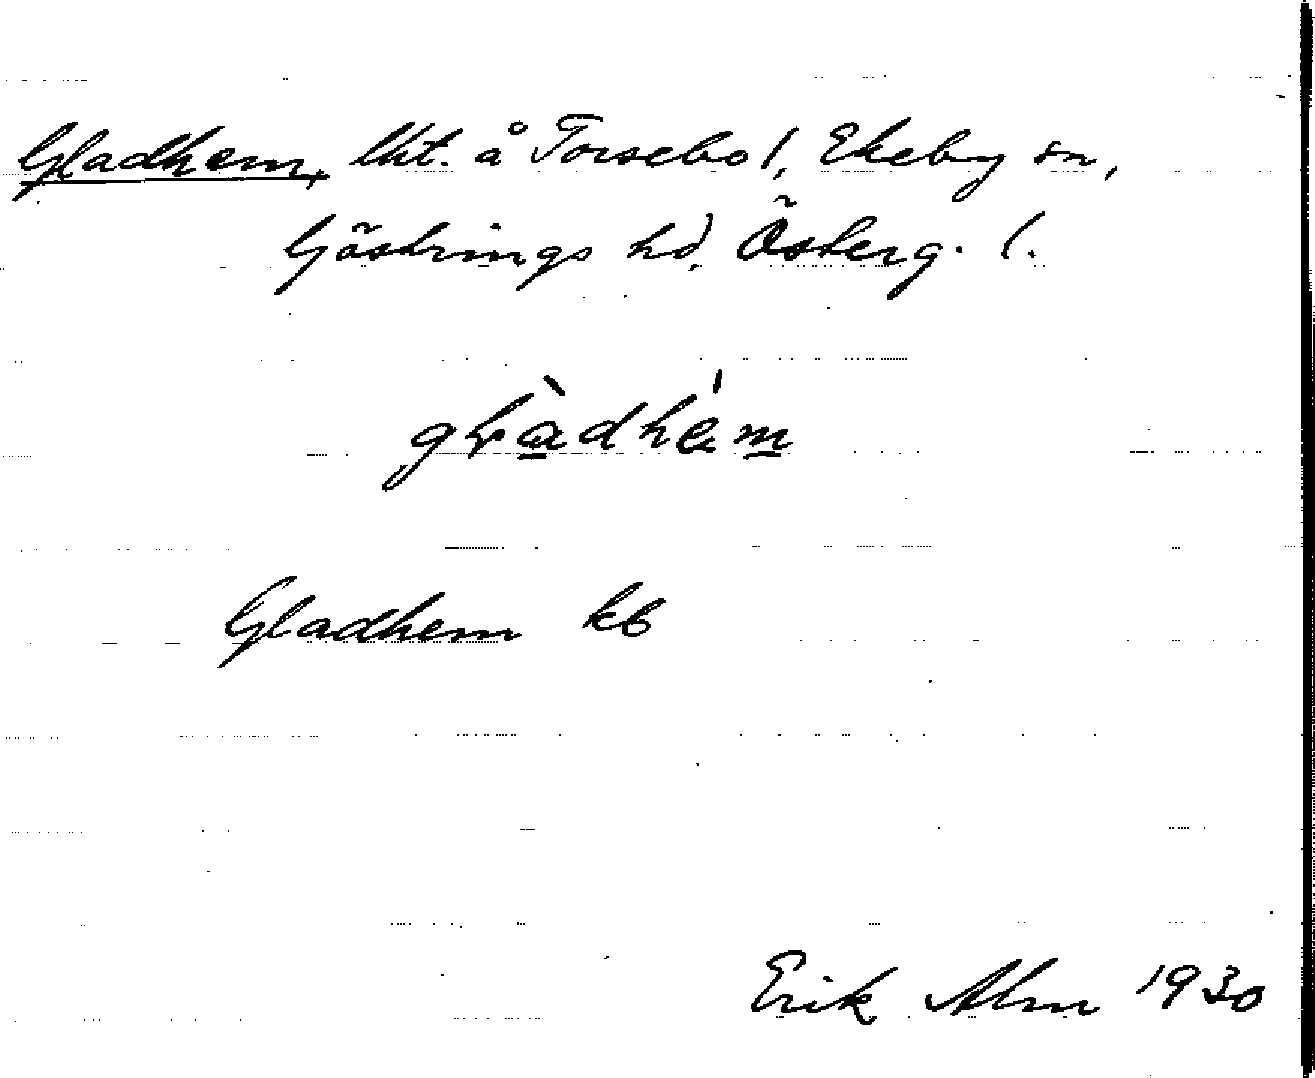 Gladhem, lht. å Torsebo 1, Ekeby sn,
Göstrings hd, Österg. l.
glàdhém
Gladhem kb
Erik Alm 1930